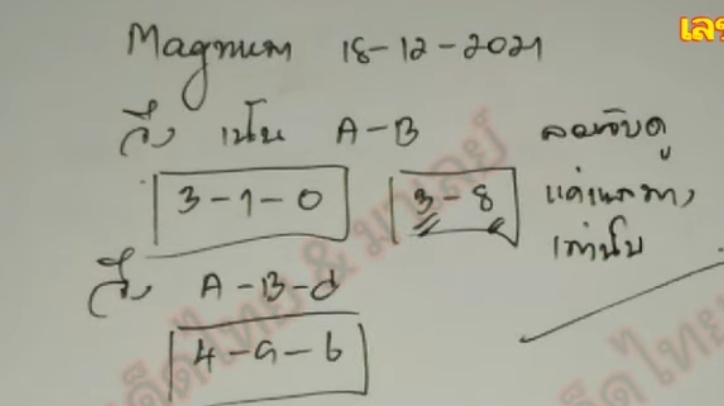 เลข
Magnum 18-12-2021
วิ่ง เน้น A-B
ลองจับดู
3-1-0
3-8
แค่แนวทาง
เท่านั้น
วิ่ง A-B-d
4-9-6